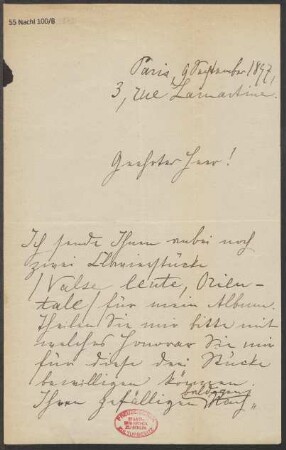 55 Nachl 100/B
Paris, 9 September 1897,
3, rue Lamartine.
Geehrter Herr!
Ich sende Ihnen anbei noch
zwei Clavierstücke
(Valse lente, Orien-
tale) für mein Album.
Theilen Sie mir bitte mit
welches Honorar Sie mir
für diese drei Stücke
bewilligen können.
Ihren gefälligen Nach-